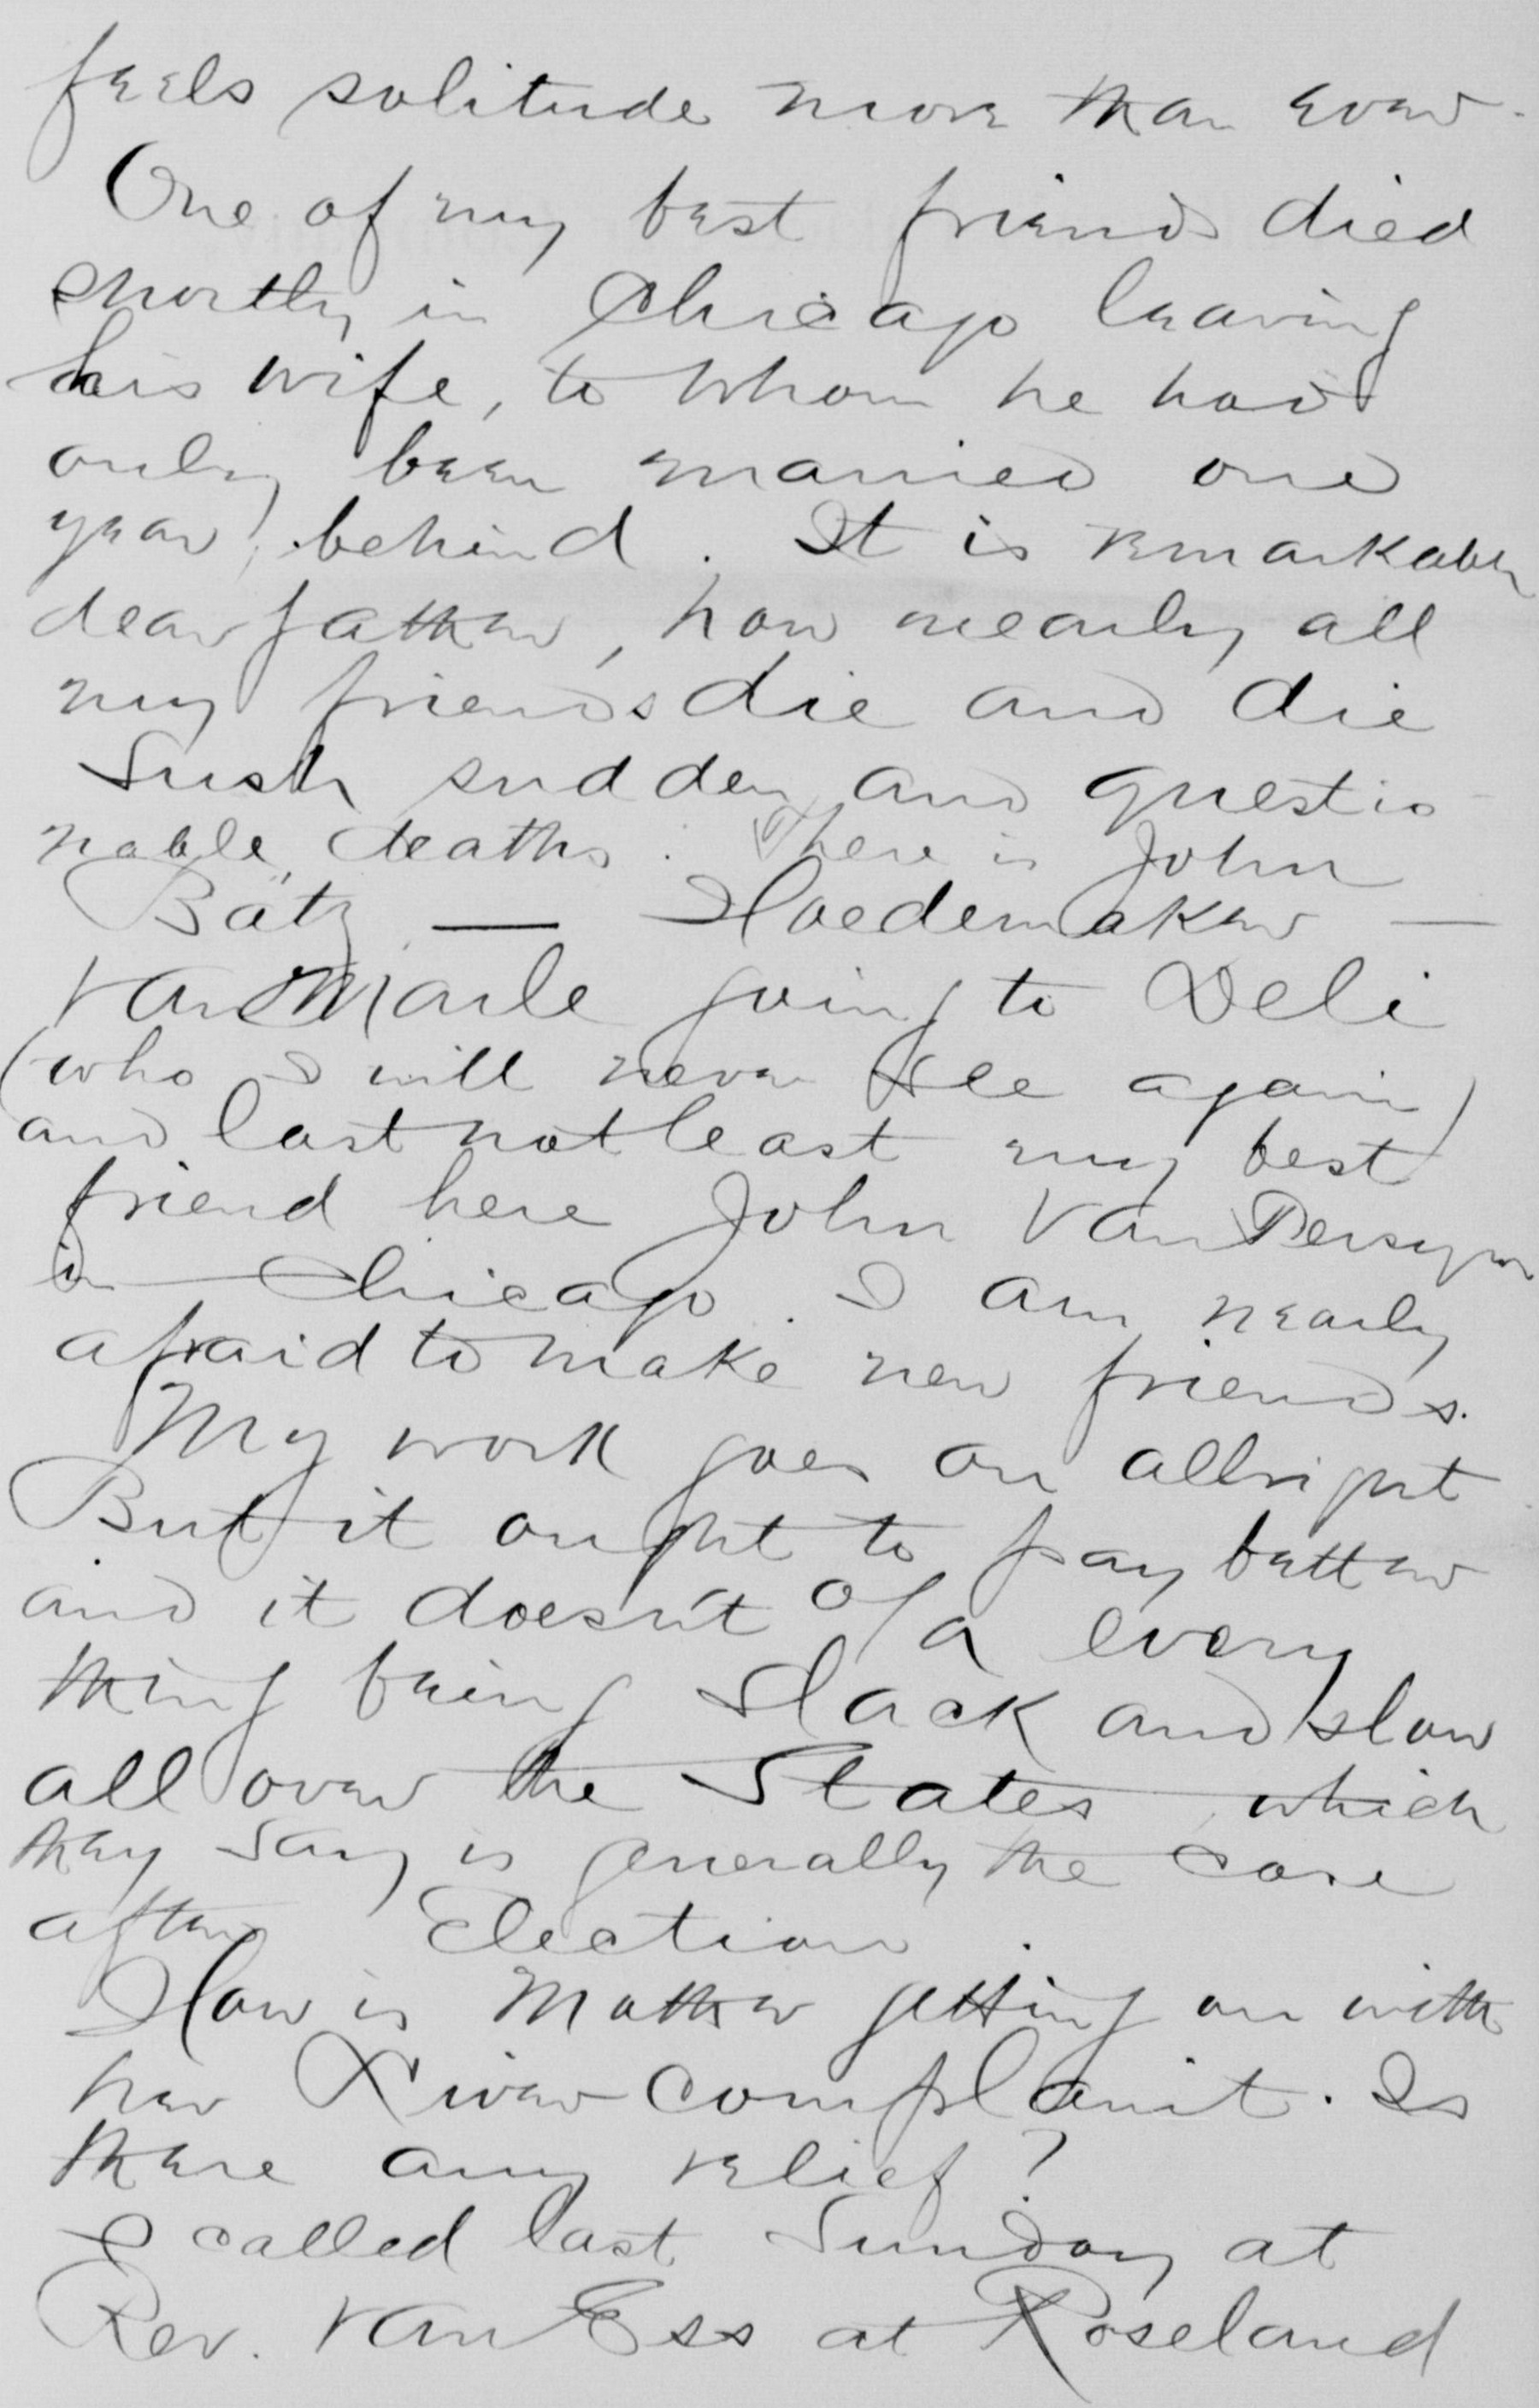 feels solitude more than ever.
One of my best friends died
shortly in Chicago leaving
his wife, to whom he had
only been married one
year, behind. It is remarkable
dear father, how nearly all
my friends die and die
Sush sudden and questio-
nable deaths. There is John
Bätz — Hoedemaker —
van Marle going to Deli
(who I will never see again)
and last not least my best
friend here John Van
in Chicago. I am nearly
afraid to make new friends.
My work goes on allright
But it ought to pay better
and it doesn't o/a every
thing being slack and slow
all over the States which
they say is generally the case
after Election.
How is Mother getting on with
her Liver complaint. Is
there any relief?
I called last Sunday at
Rev. Van Ess at Roseland